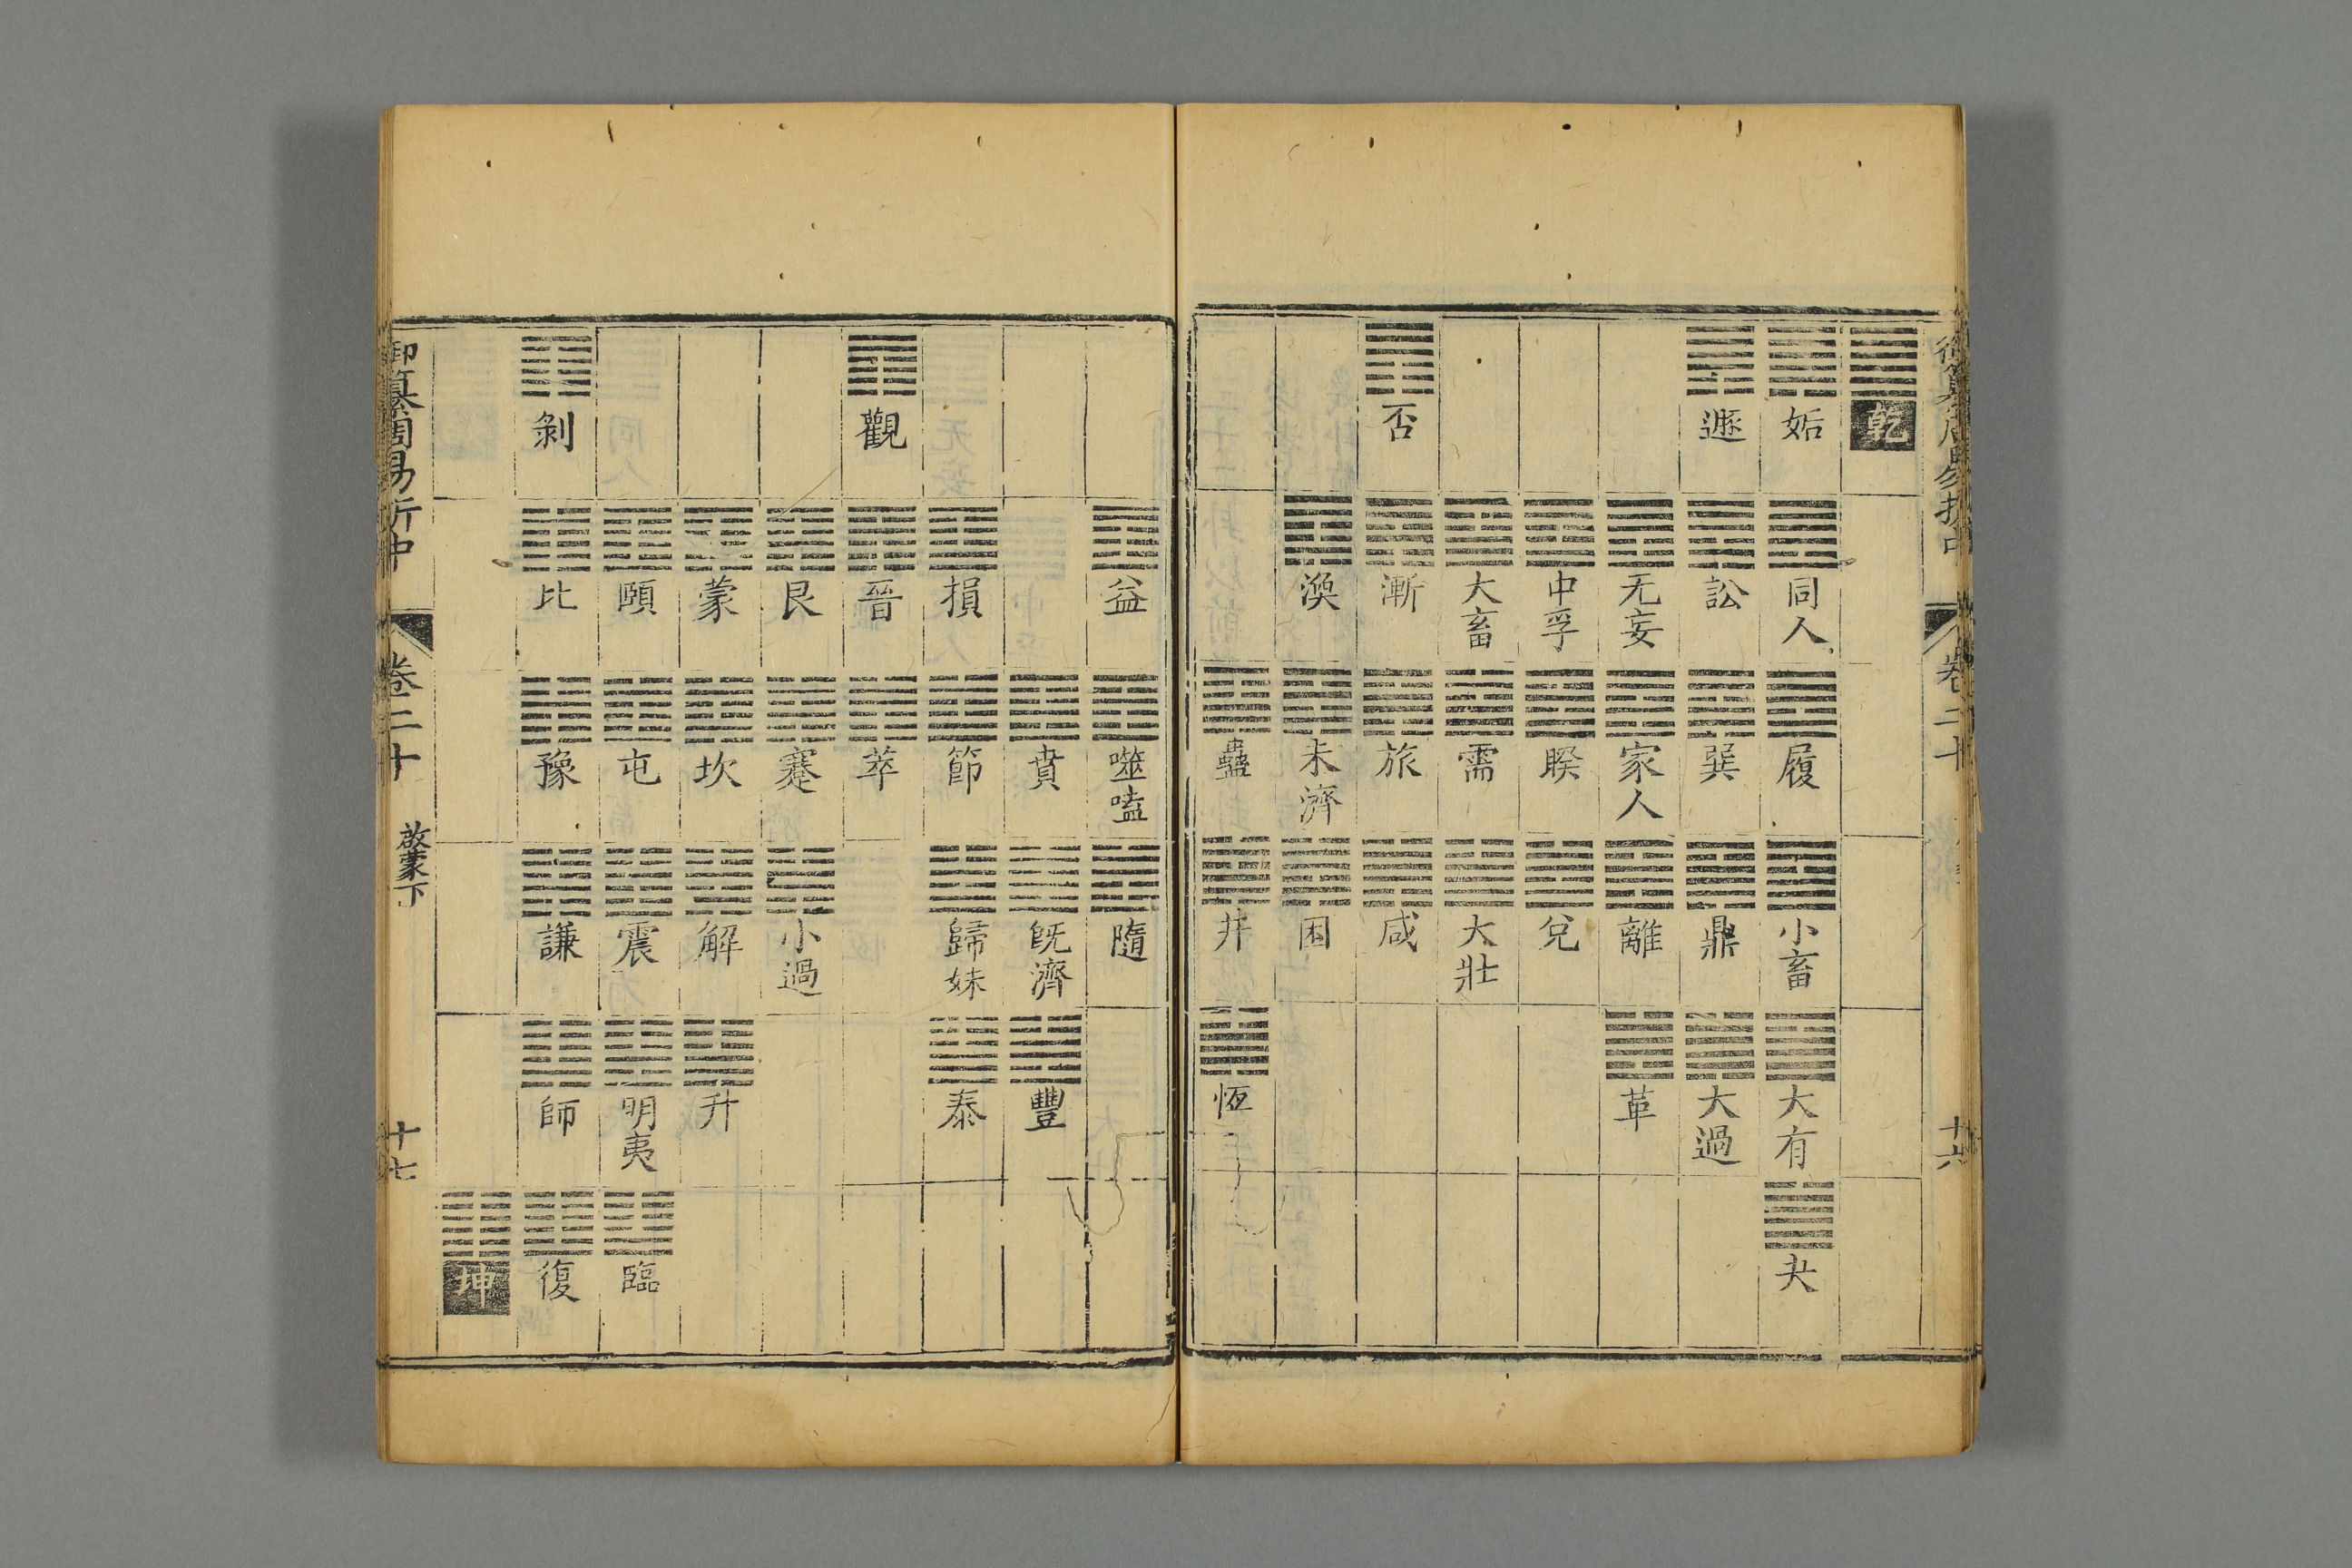 御纂周易折中 卷二十 十六
乾
姤 同人 履 小畜 大有 夬
遯 訟 巽 鼎 大過
无妄 家人 離 革
中孚 睽 兌
大畜 需 大壯
否 漸 旅 咸
渙 未濟 困
蠱 井 恆
益 噬嗑 隨
賁 旣濟 豐
損 節 歸妹 泰
觀 晉 萃
艮 蹇 小過
蒙 坎 解 升
頤 屯 震 明夷 臨
剝 比 豫 謙 師 復
坤
御纂周易折中 卷二十 啟蒙下 十七